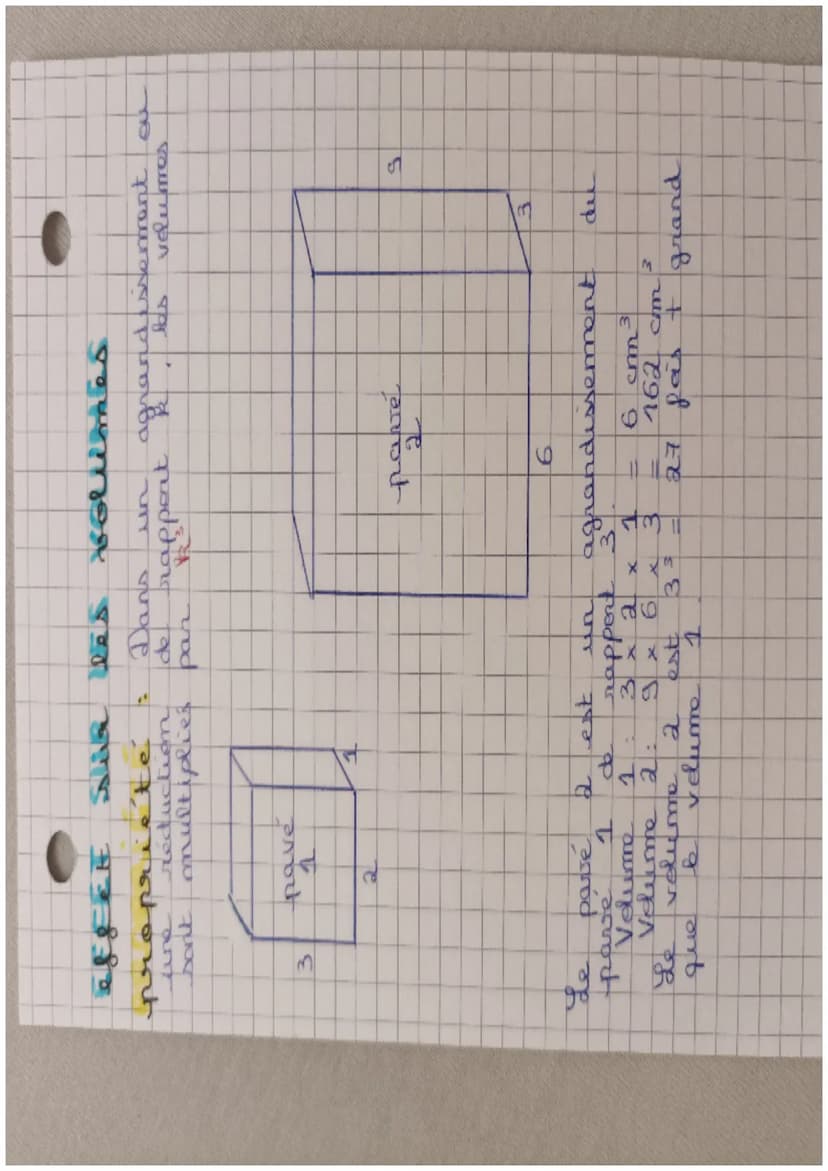 effet sur les volumes
propriété : Dans un agrandissement ou
une réduction de rapport k, les volumes
sont multipliés par k³
3
pavé
1
2
1
pavé
2
9
3
6
Le pavé 2 est un agrandissement du
pavé 1 de rapport 3.
Volume 1 : 3 x 2 x 1 = 6 cm³
Volume 2 : 9 x 6 x 3 = 162 cm³
Le volume 2 est 3³ = 27 fois + grand
que le volume 1.